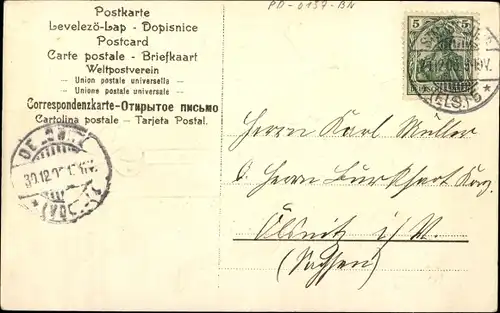 PD-0157-BN
Postkarte
Levelező-Lap - Dopisnice
Postcard
Carte postale - Briefkaart
Weltpostverein
- Union postale universelle -
- Unione postale universale -
Correspondenzkarte-Открытое письмо
Cartolina postale - Tarjeta Postal.
5 5
Herrn Karl Müller
Herrn Burkhart
Ölsnitz i/V.
(Sachsen)